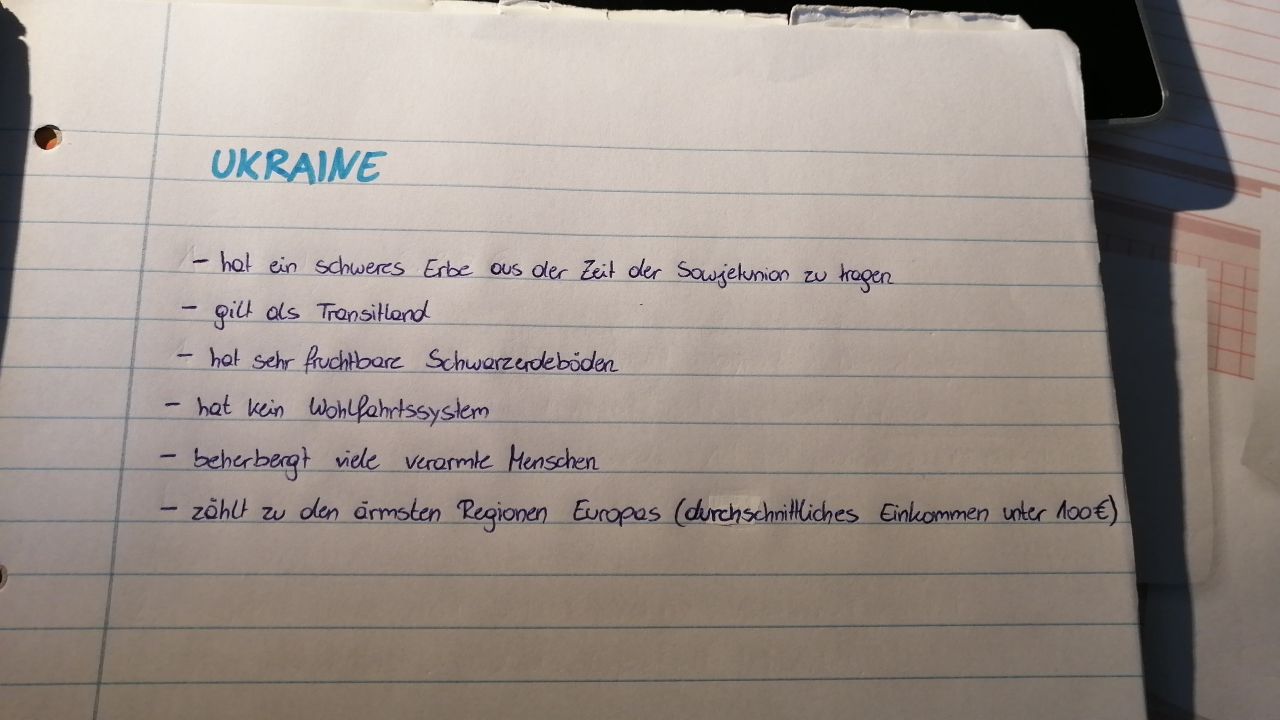 UKRAINE
- hat ein schweres Erbe aus der Zeit der Sowjetunion zu tragen
- gilt als Transitland
- hat sehr fruchtbare Schwarzerdeböden
- hat kein Wohlfahrtssystem
- beherbergt viele verarmte Menschen
- zählt zu den ärmsten Regionen Europas (durchschnittliches Einkommen unter 100€)